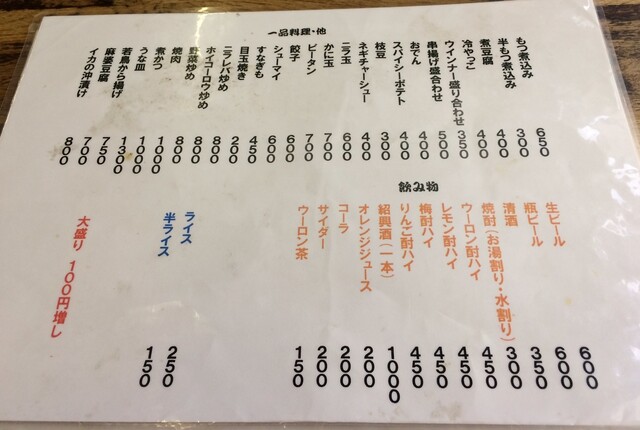 一品料理・他
もつ煮込み 650
半もつ煮込み 300
煮豆腐 400
冷やっこ 400
ウインナー盛り合わせ 350
串揚げ盛合わせ 500
おでん 400
スパイシーポテト 400
枝豆 300
ネギチャーシュー 400
ニラ玉 600
かに玉 700
ピータン 700
餃子 600
シューマイ 600
すなぎも 450
目玉焼き 200
ニラレバ炒め 800
ホイコーロウ炒め 800
野菜炒め 800
焼肉 1000
煮かつ 1000
うな皿 1300
若鳥から揚げ 750
麻婆豆腐 700
イカの沖漬け 800
飲み物
生ビール 600
瓶ビール 600
清酒 350
焼酎(お湯割り・水割り) 300
ウーロン酎ハイ 450
レモン酎ハイ 450
梅酎ハイ 450
りんご酎ハイ 450
紹興酒(一本) 1000
オレンジジュース 200
コーラ 200
サイダー 200
ウーロン茶 150
ライス 250
半ライス 150
大盛り 100円増し